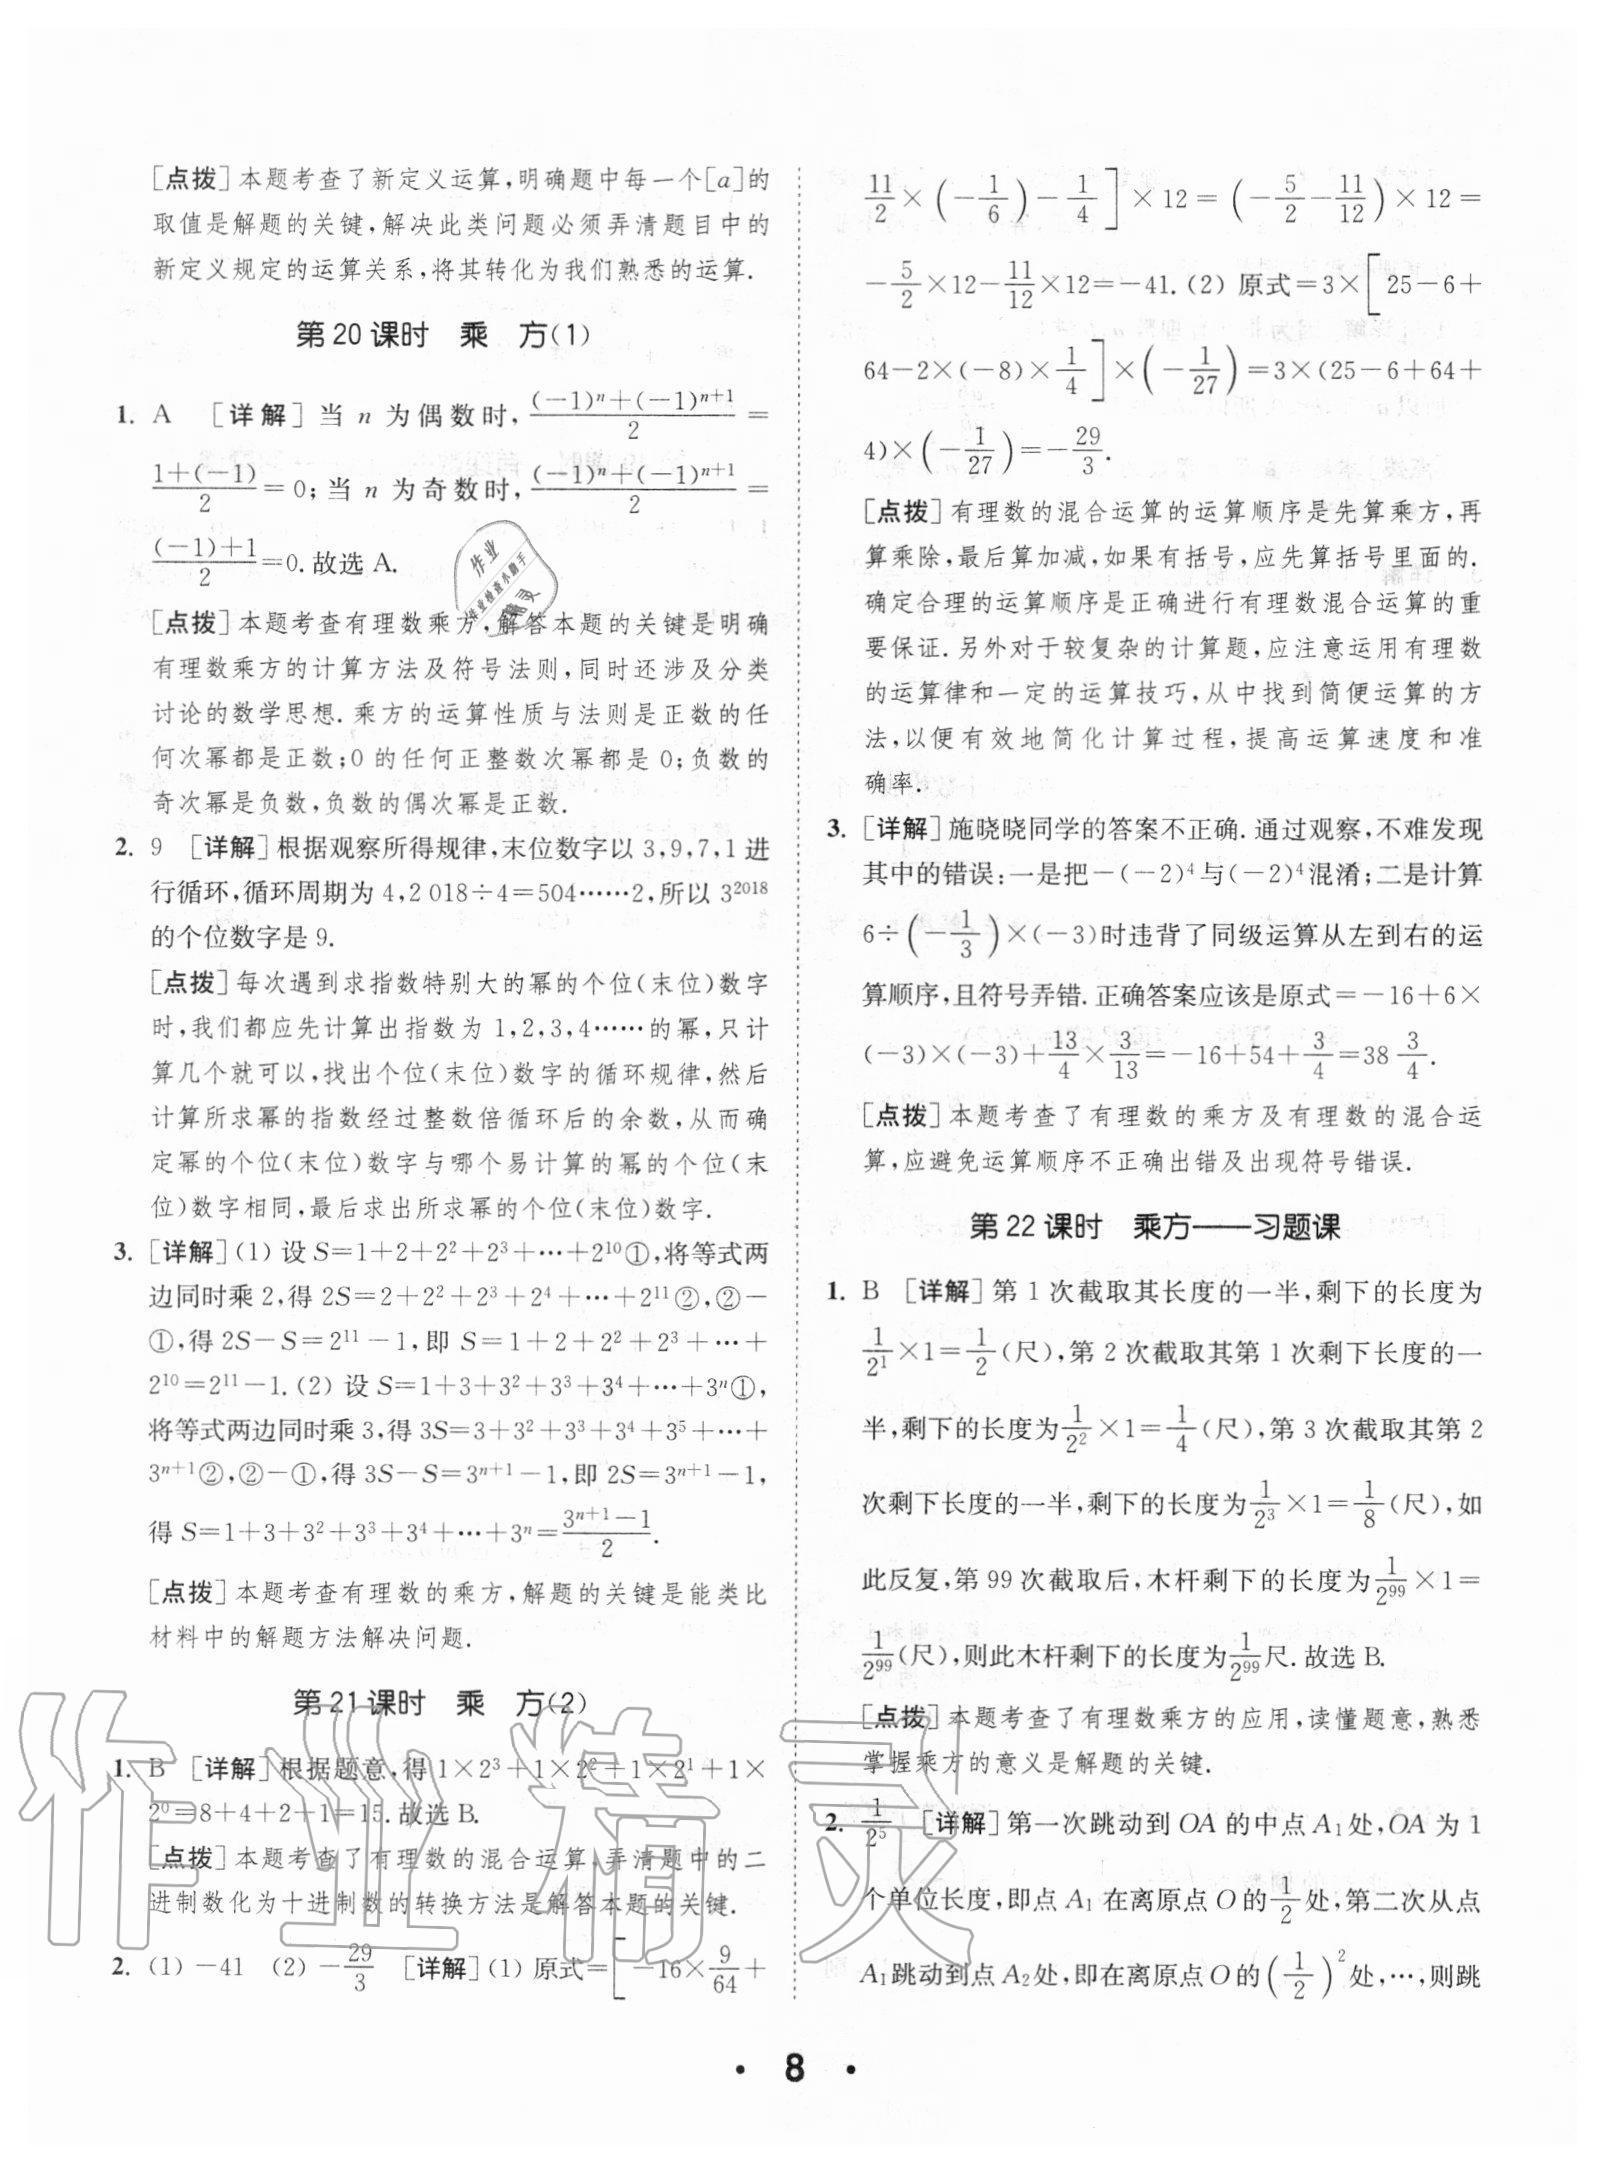 [点拨]本题考查了新定义运算,明确题中每一个[a]的
取值是解题的关键,解决此类问题必须弄清题目中的
新定义规定的运算关系,将其转化为我们熟悉的运算.
第20课时 乘 方(1)
1. A [详解]当 n 为偶数时, \frac{(-1)^n+(-1)^{n+1}}{2}=
\frac{1+(-1)}{2}=0;当 n 为奇数时, \frac{(-1)^n+(-1)^{n+1}}{2}=
\frac{(-1)+1}{2}=0.故选 A.
[点拨]本题考查有理数乘方,解答本题的关键是明确
有理数乘方的计算方法及符号法则,同时还涉及分类
讨论的数学思想.乘方的运算性质与法则是正数的任
何次幂都是正数;0 的任何正整数次幂都是 0;负数的
奇次幂是负数,负数的偶次幂是正数.
2. 9 [详解]根据观察所得规律,末位数字以 3,9,7,1 进
行循环,循环周期为 4,2 018÷4=504……2,所以 3²⁰¹⁸
的个位数字是 9.
[点拨]每次遇到求指数特别大的幂的个位(末位)数字
时,我们都应先计算出指数为 1,2,3,4……的幂,只计
算几个就可以,找出个位(末位)数字的循环规律,然后
计算所求幂的指数经过整数倍循环后的余数,从而确
定幂的个位(末位)数字与哪个易计算的幂的个位(末
位)数字相同,最后求出所求幂的个位(末位)数字.
3. [详解](1) 设 S=1+2+2²+2³+…+2¹⁰①,将等式两
边同时乘 2,得 2S=2+2²+2³+2⁴+…+2¹¹②,②-
①,得 2S-S=2¹¹-1,即 S=1+2+2²+2³+…+
2¹⁰=2¹¹-1.(2) 设 S=1+3+3²+3³+3⁴+…+3ⁿ①,
将等式两边同时乘 3,得 3S=3+3²+3³+3⁴+3⁵+…+
3ⁿ⁺¹②,②-①,得 3S-S=3ⁿ⁺¹-1,即 2S=3ⁿ⁺¹-1,
得 S=1+3+3²+3³+3⁴+…+3ⁿ=\frac{3^{n+1}-1}{2}.
[点拨]本题考查有理数的乘方,解题的关键是能类比
材料中的解题方法解决问题.
第21课时 乘 方(2)
1. B [详解]根据题意,得 1×2³+1×2²+1×2¹+1×
2⁰=8+4+2+1=15.故选 B.
[点拨]本题考查了有理数的混合运算,弄清题中的二
进制数化为十进制数的转换方法是解答本题的关键.
2. (1) -41 (2) -\frac{29}{3} [详解](1) 原式=[-16×\frac{9}{64}+
\frac{11}{2}×(-\frac{1}{6})-\frac{1}{4}]×12=(-\frac{5}{2}-\frac{11}{12})×12=
-\frac{5}{2}×12-\frac{11}{12}×12=-41.(2) 原式=3×[25-6+
64-2×(-8)×\frac{1}{4}]×(-\frac{1}{27})=3×(25-6+64+
4)×(-\frac{1}{27})=-\frac{29}{3}.
[点拨]有理数的混合运算的运算顺序是先算乘方,再
算乘除,最后算加减,如果有括号,应先算括号里面的.
确定合理的运算顺序是正确进行有理数混合运算的重
要保证.另外对于较复杂的计算题,应注意运用有理数
的运算律和一定的运算技巧,从中找到简便运算的方
法,以便有效地简化计算过程,提高运算速度和准
确率.
3. [详解]施晓晓同学的答案不正确.通过观察,不难发现
其中的错误:一是把-(-2)⁴与(-2)⁴混淆;二是计算
6÷(-\frac{1}{3})×(-3)时违背了同级运算从左到右的运
算顺序,且符号弄错.正确答案应该是原式=-16+6×
(-3)×(-3)+\frac{13}{4}×\frac{3}{13}=-16+54+\frac{3}{4}=38\frac{3}{4}.
[点拨]本题考查了有理数的乘方及有理数的混合运
算,应避免运算顺序不正确出错及出现符号错误.
第22课时 乘方——习题课
1. B [详解]第 1 次截取其长度的一半,剩下的长度为
\frac{1}{2^1}×1=\frac{1}{2}(尺),第 2 次截取其第 1 次剩下长度的一
半,剩下的长度为\frac{1}{2^2}×1=\frac{1}{4}(尺),第 3 次截取其第 2
次剩下长度的一半,剩下的长度为\frac{1}{2^3}×1=\frac{1}{8}(尺),如
此反复,第 99 次截取后,木杆剩下的长度为\frac{1}{2^{99}}×1=
\frac{1}{2^{99}}(尺),则此木杆剩下的长度为\frac{1}{2^{99}}尺.故选 B.
[点拨]本题考查了有理数乘方的应用,读懂题意,熟悉
掌握乘方的意义是解题的关键.
2. \frac{1}{2^5} [详解]第一次跳动到 OA 的中点 A₁ 处,OA 为 1
个单位长度,即点 A₁ 在离原点 O 的\frac{1}{2}处,第二次从点
A₁跳动到点 A₂ 处,即在离原点 O 的(\frac{1}{2})²处,…,则跳
• 8 •
作业精灵
作业
作业检查小助手
精灵